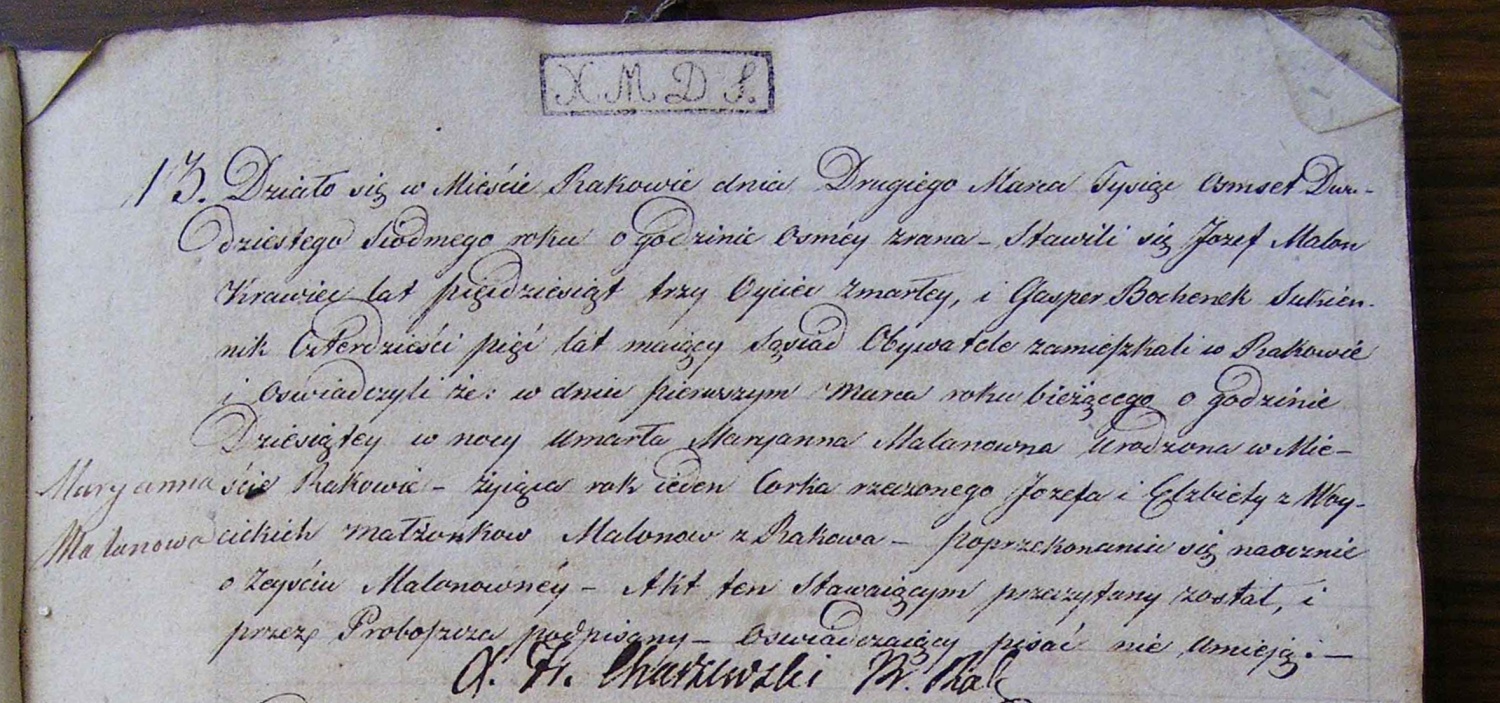 X M D S.
13. Działo się w Mieście Rakowie dnia Drugiego Marca Tysiąc Osmset Dwu-
dziestego Siodmego roku o godzinie Osméy zrana – Stawili się Jozef Malon
Krawiec lat pięćdziesiąt trzy Oyciec zmarłey, i Gasper Bochenek Sukien-
nik Czterdzieści pięć lat maiący Sąsiad Obywatele zamieszkali w Rakowie
i Oswiadczyli że: w dniu pierwszym Marca roku bieżącego o godzinie
Dziesiątey w nocy Umarła Maryanna Malanowna Urodzona w Mie-
ście Rakowie – żyiąca rok ieden Corka rzeczonego Jozefa i Elzbiety z Woy-
cickich Małżonkow Malonow z Rakowa – poprzekonaniu się naocznie
o Zeyściu Malonownéy – Akt ten Stawaiącym przeczytany został, i
przez Proboszcza podpisany – Oswiadczaiący pisać nie Umieją. –
Maryanna
Malanowa
X. Fr. Charzewski Pr. Rak